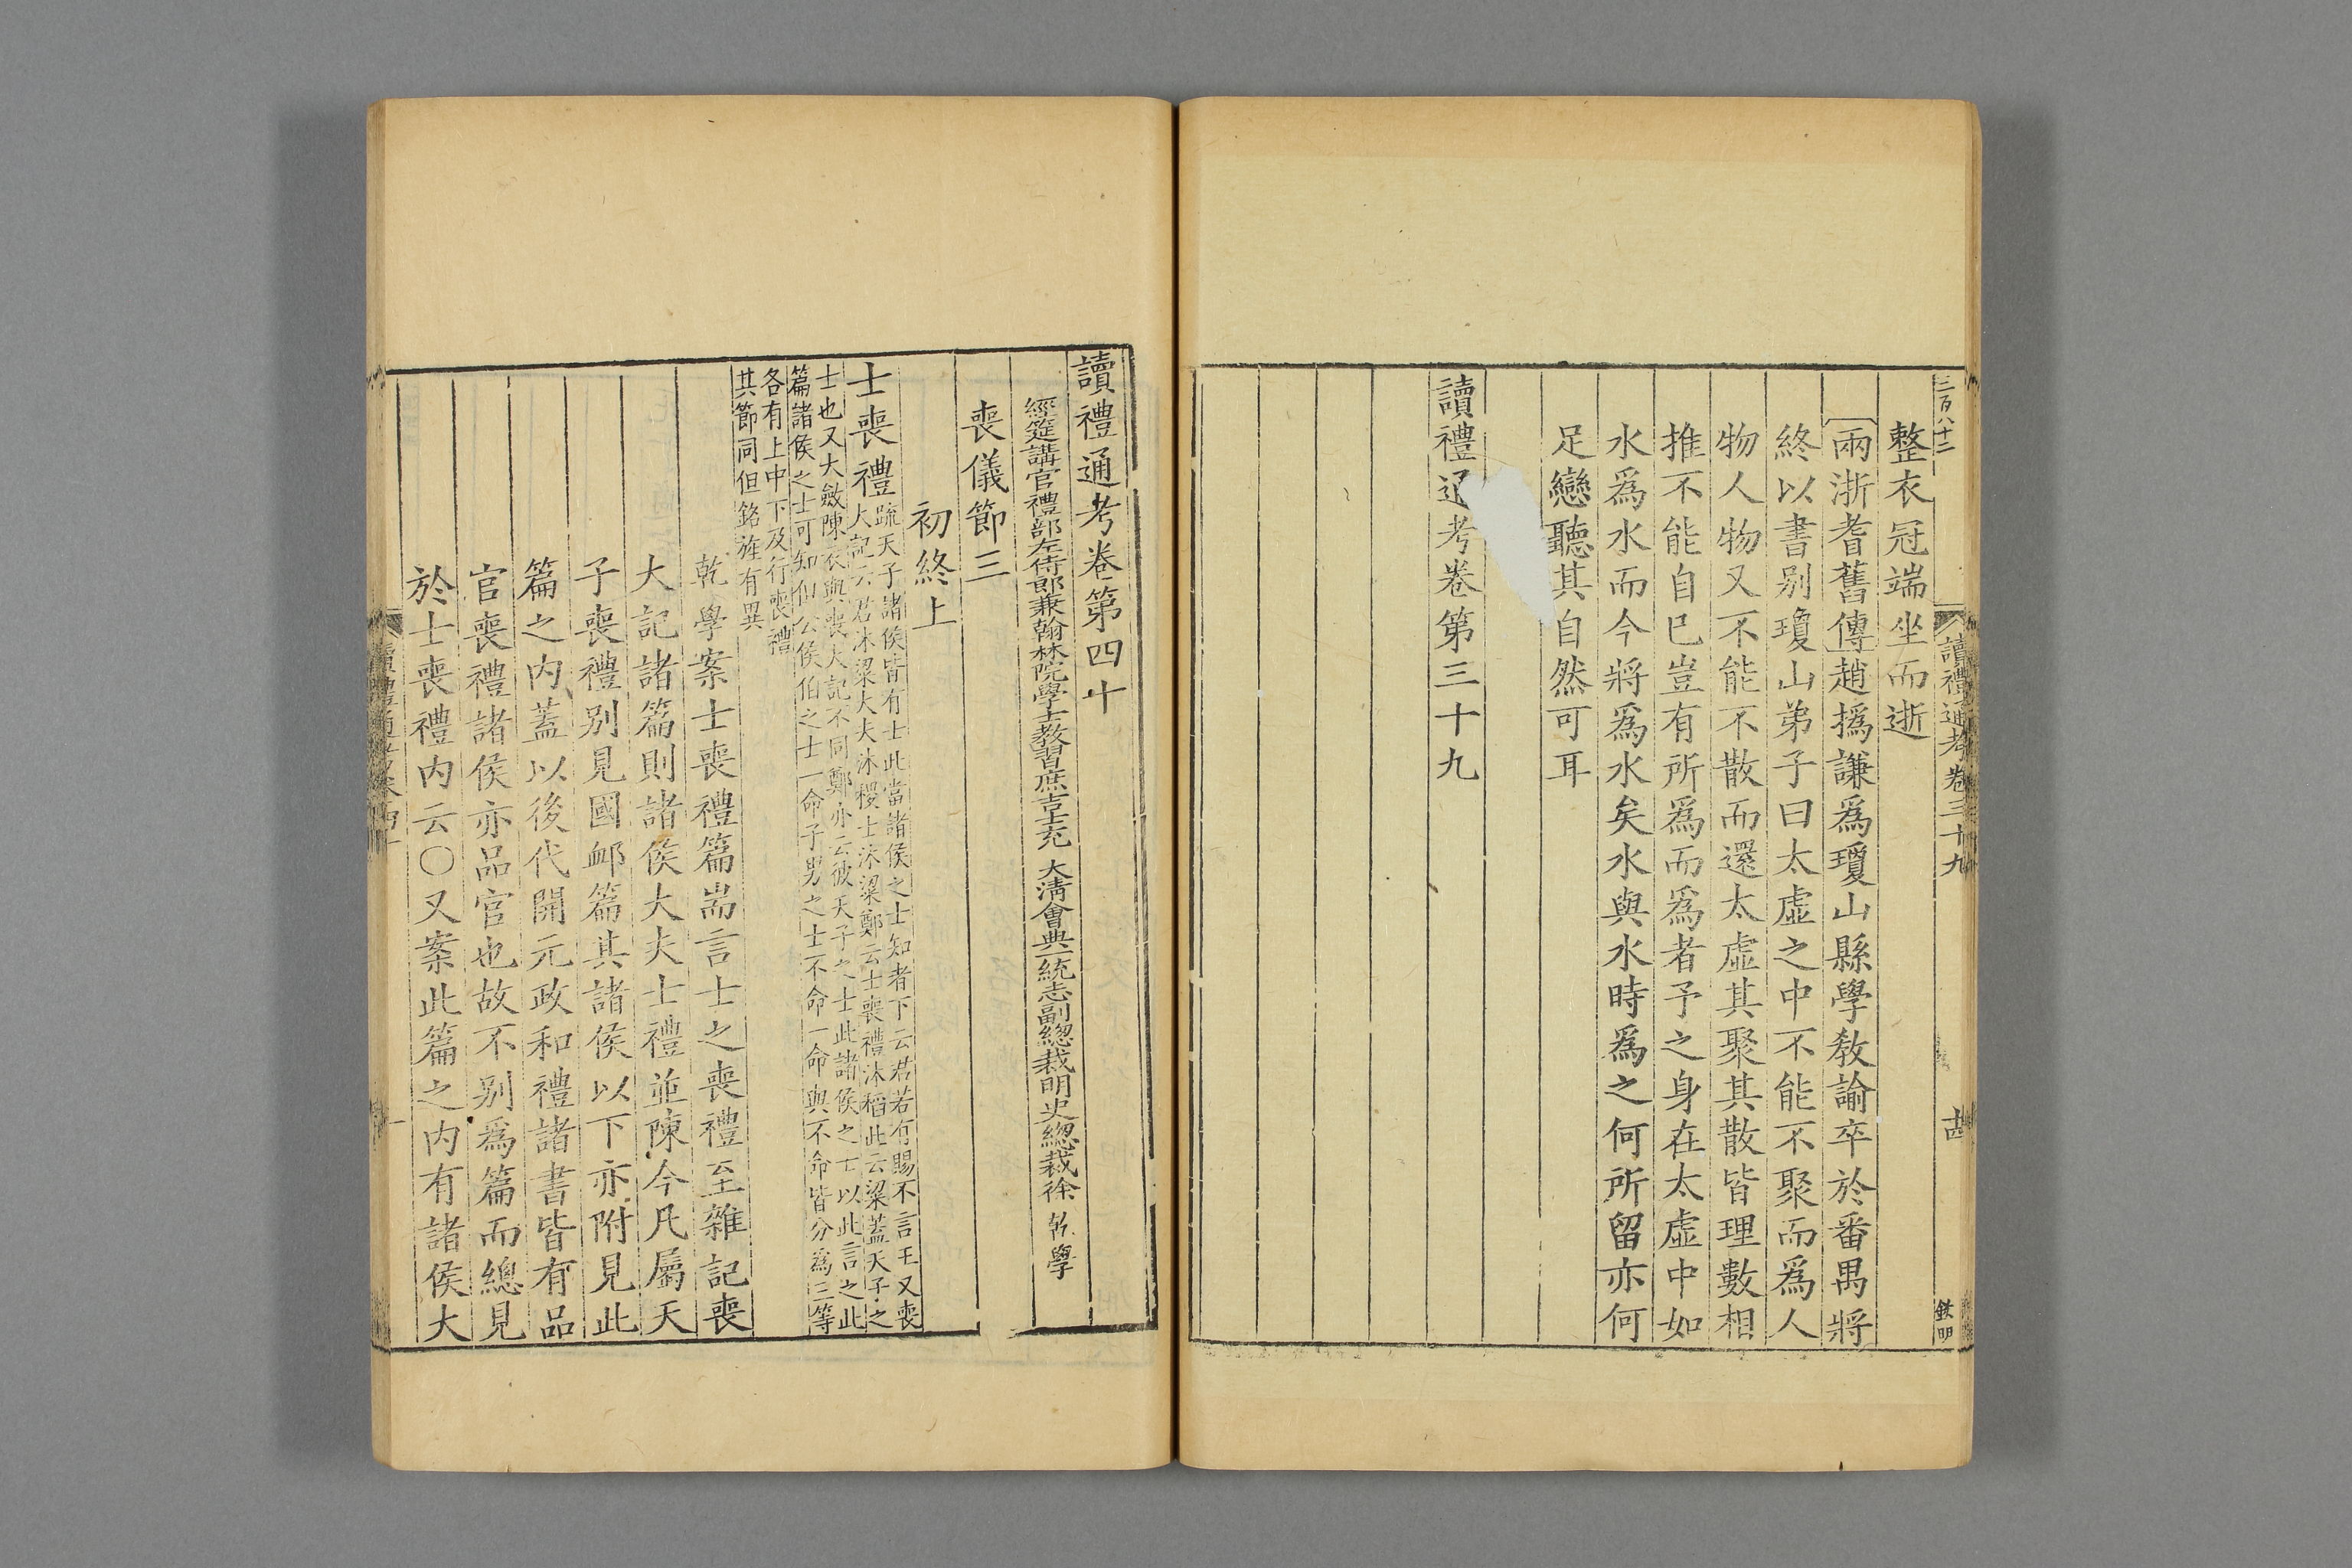 三百八十二
讀禮通考卷三十九
十四
欽明
整衣冠端坐而逝
兩浙耆舊傳趙撝謙爲瓊山縣學敎諭卒於番禺將
終以書别瓊山弟子曰太虛之中不能不聚而爲人
物人物又不能不散而還太虛其聚其散皆理數相
推不能自已豈有所爲而爲者予之身在太虛中如
水爲水而今將爲水矣水與水時爲之何所留亦何
足戀聽其自然可耳
讀禮通考卷第三十九
讀禮通考卷第四十
經筵講官禮部左侍郎兼翰林院學士敎習庶吉士充 大淸會典一統志副總裁明史總裁徐 乾學
喪儀節三
初終上
士喪禮疏天子諸侯皆有士此當諸侯之士知者下云君若有賜不言王又喪
大記云君沐粱大夫沐稷士沐粱鄭云士喪禮沐稻此云粱蓋天子之
士也又大斂陳衣與喪大記不同鄭亦云彼天子之士此諸侯之士以此言之此
篇諸侯之士可知但公侯伯之士一命子男之士不命一命與不命皆分爲三等
各有上中下及行喪禮
其節同但銘旌有異
乾學案士喪禮篇耑言士之喪禮至雜記喪
大記諸篇則諸侯大夫士禮並陳今凡屬天
子喪禮别見國卹篇其諸侯以下亦附見此
篇之内蓋以後代開元政和禮諸書皆有品
官喪禮諸侯亦品官也故不别爲篇而總見
於士喪禮内云〇又案此篇之内有諸侯大
讀禮通考卷四十
一